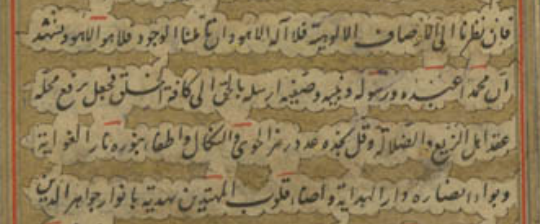 فان نظرنا الى الاوصاف الالوهية فلا اله الا هو وان تأملنا الوجود فلا هو الا هو ونشهد
ان محمدا عبده ورسوله ونبيه وصفيه ارسله بالحق الى كافة الخلق فجعل برفع محله
عقد اهل الزيغ والضلالة وفل بحده عدد الكمال واطفأ بنوره نار الغواية
وبوأ انصاره دار الهداية واضاء قلوب المهتدين بهديه بانوار جواهر الدين